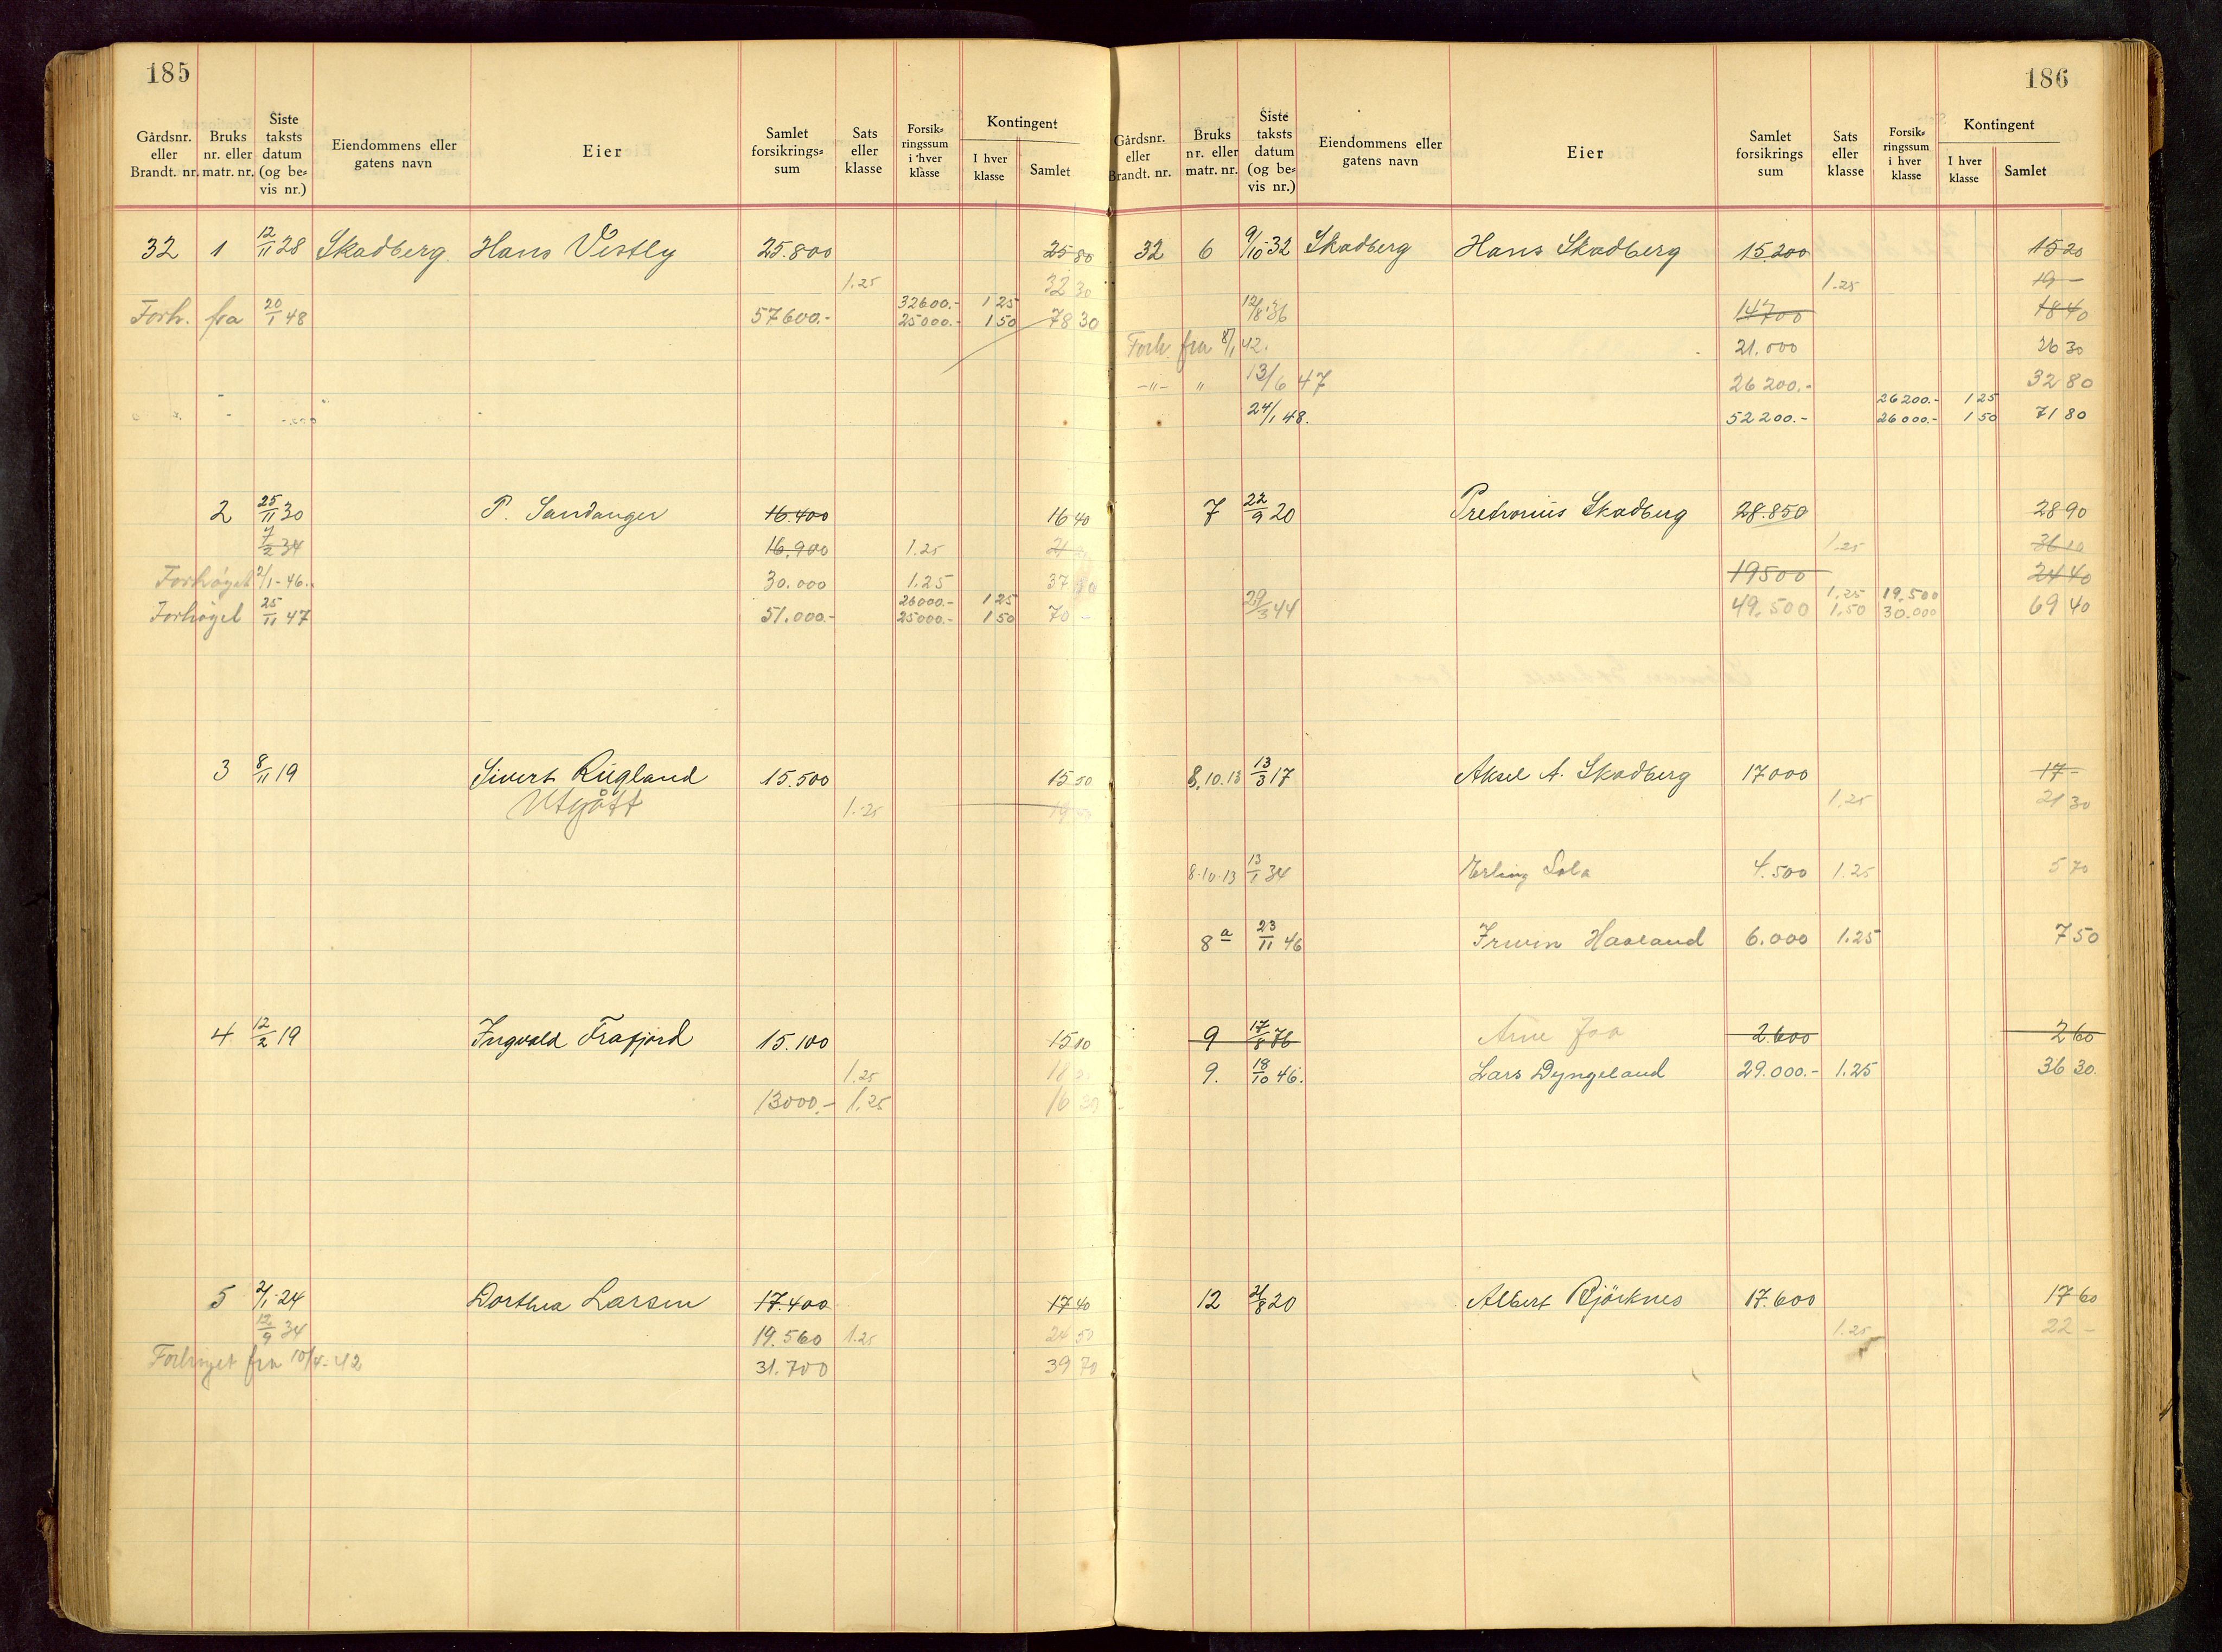 185
Gårdsnr. eller Brandt. nr. Bruks nr. eller matr. nr. Siste taksts datum (og be= vis nr.) Eiendommens eller gatens navn Eier Samlet forsikrings= sum Sats eller klasse Forsik= ringssum i hver klasse Kontingent I hver klasse Samlet
32 1 12/11 28 Skadberg Hans Vestly 25.800 25 80
1.25 32 30
32600.- 1 25
Forh. fra 20/1 48 57600.- 25000.- 1 50 78 30
2 25/11 30 P. Sandanger 16.400 16 40
7/2 34 16.900 1.25
Forhøyet 2/1-46. 30.000 1.25
26000.- 1 25
Forhøyet 25/11 47 51.000.- 25000.- 1 50 70 -
3 8/11 19 Sivert Rügland 15.500 15 50
Utgått 1.25
4 12/2 19 Ingvald Frafjord 15.100 15 10
1.25 18
13000.- 1.25 16 30
5 2/1-24 Dorthea Larsen 17.400 17 40
12/9 34 19.560 1.25 24 50
Forhøyet fra 10/4-42 31.700 39 70
186
Gårdsnr. eller Brandt. nr. Bruks nr. eller matr. nr. Siste taksts datum (og be= vis nr.) Eiendommens eller gatens navn Eier Samlet forsikrings sum Sats eller klasse Forsik= ringssum i hver klasse Kontingent I hver klasse Samlet
32 6 9/10-32 Skadberg Hans Skadberg 15.200 15 20
1.25 19 -
12/8-36 14700 18 40
Forh. fra 8/1 42. 21.000 26 30
-"- " 13/6 47 26200.- 32 80
26200.- 1 25
24/1 48. 52200.- 26000.- 1 50 71 80
7 22/9 20 Skadberg 28.850 28 90
1.25 36 10
19500 24 40
1.25 19.500
29/3 44 49.500 1.50 30.000 69 40
8,10.13 13/3 17 Aksel A. Skadberg 17000 17 -
1.25 21 30
8-10-13 13/1 34 Erling Sola 4.500 1.25 5 70
8a 23/11 46 Haaland 6.000 1.25 7 50
9 17/8 36 Arne Joa 2.600 2 60
9. 18/10 46. Lars Dyngeland 29.000.- 1.25 36 30.
12 21/8 20 Albert Bjørknes 17.600 17 60
1.25 22 -